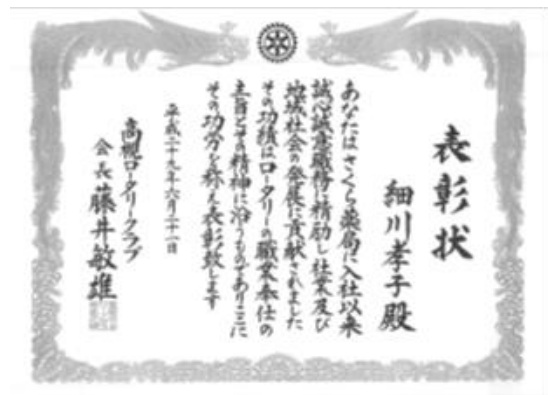 表彰状
細川孝子殿
あなたはさくら薬局に入社以来
誠心誠意職務に精励し社業及び
地域社会の発展に貢献されました
その功績はロータリーの職業奉仕の
主旨とその精神に沿うものでありここに
その功労を称え表彰致します
平成二十九年六月二十一日
高槻ロータリークラブ
会長藤井敏雄